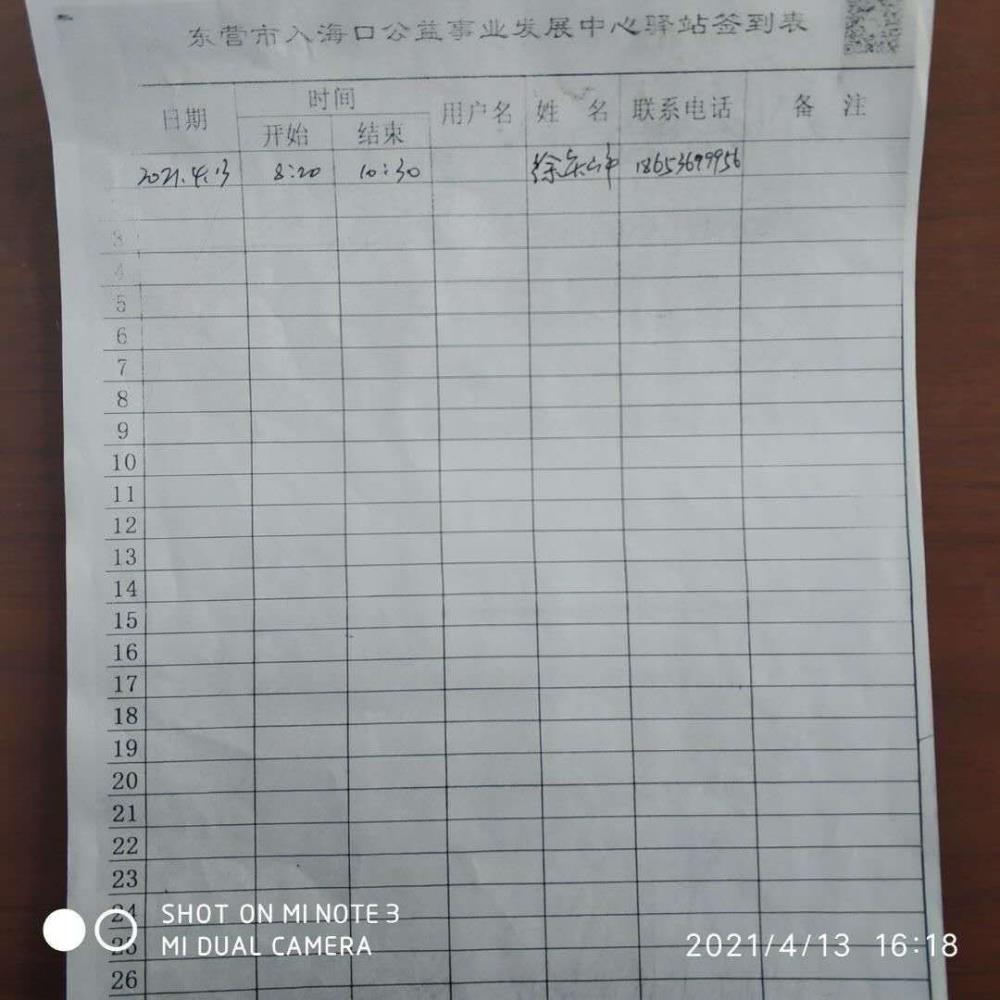 东营市入海口公益事业发展中心驿站签到表
日期 时间 用户名 姓 名 联系电话 备 注
开始 结束
2021.4.13 8:20 10:30 徐 18653699956
3
4
5
6
7
8
9
10
11
12
13
14
15
16
17
18
19
20
21
22
23
24
25
26
SHOT ON MI NOTE 3
MI DUAL CAMERA
2021/4/13 16:18